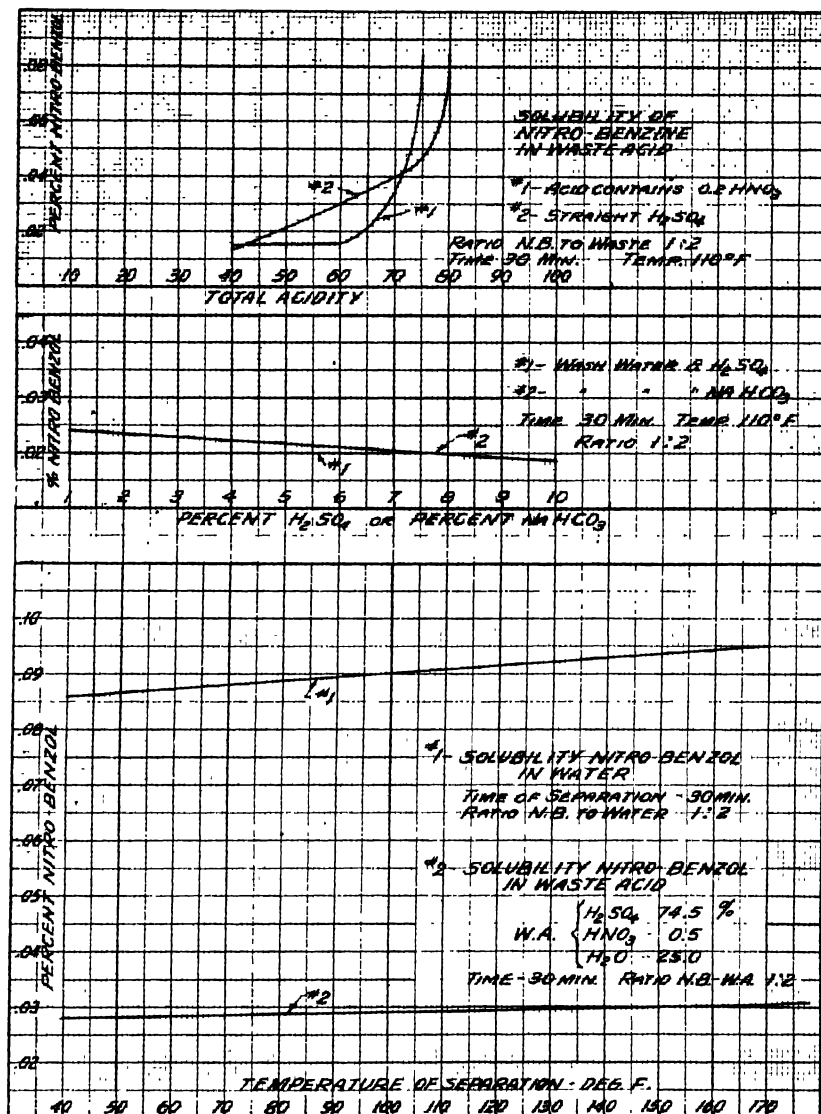 PERCENT NITRO-BENZOL
.04
SOLUBILITY OF
NITRO-BENZINE
IN WASTE ACID
#1- ACID CONTAINS 0.2 HNO₃
#2- STRAIGHT H₂SO₄
RATIO N.B. TO WASTE 1:2
TIME 30 MIN. TEMP. 110°F
#2
#1
10 20 30 40 50 60 70 80 90 100
TOTAL ACIDITY
% NITRO BENZOL
.04
.03
.02
#1- WASH WATER & H₂SO₄
#2- " " " NAHCO₃
TIME 30 MIN. TEMP. 110°F
RATIO 1:2
#2
#1
1 2 3 4 5 6 7 8 9 10
PERCENT H₂SO₄ OR PERCENT NAHCO₃
PERCENT NITRO-BENZOL
.10
.09
.08
.07
.06
.05
.04
.03
.02
#1
#1- SOLUBILITY NITRO-BENZOL
IN WATER
TIME OF SEPARATION - 30 MIN.
RATIO N.B. TO WATER 1:2
#2- SOLUBILITY NITRO-BENZOL
IN WASTE ACID
W.A.
H₂SO₄ 74.5 %
HNO₃ 0.5
H₂O 25.0
TIME - 30 MIN. RATIO N.B-W.A. 1:2
#2
TEMPERATURE OF SEPARATION - DEG. F.
40 50 60 70 80 90 100 110 120 130 140 150 160 170